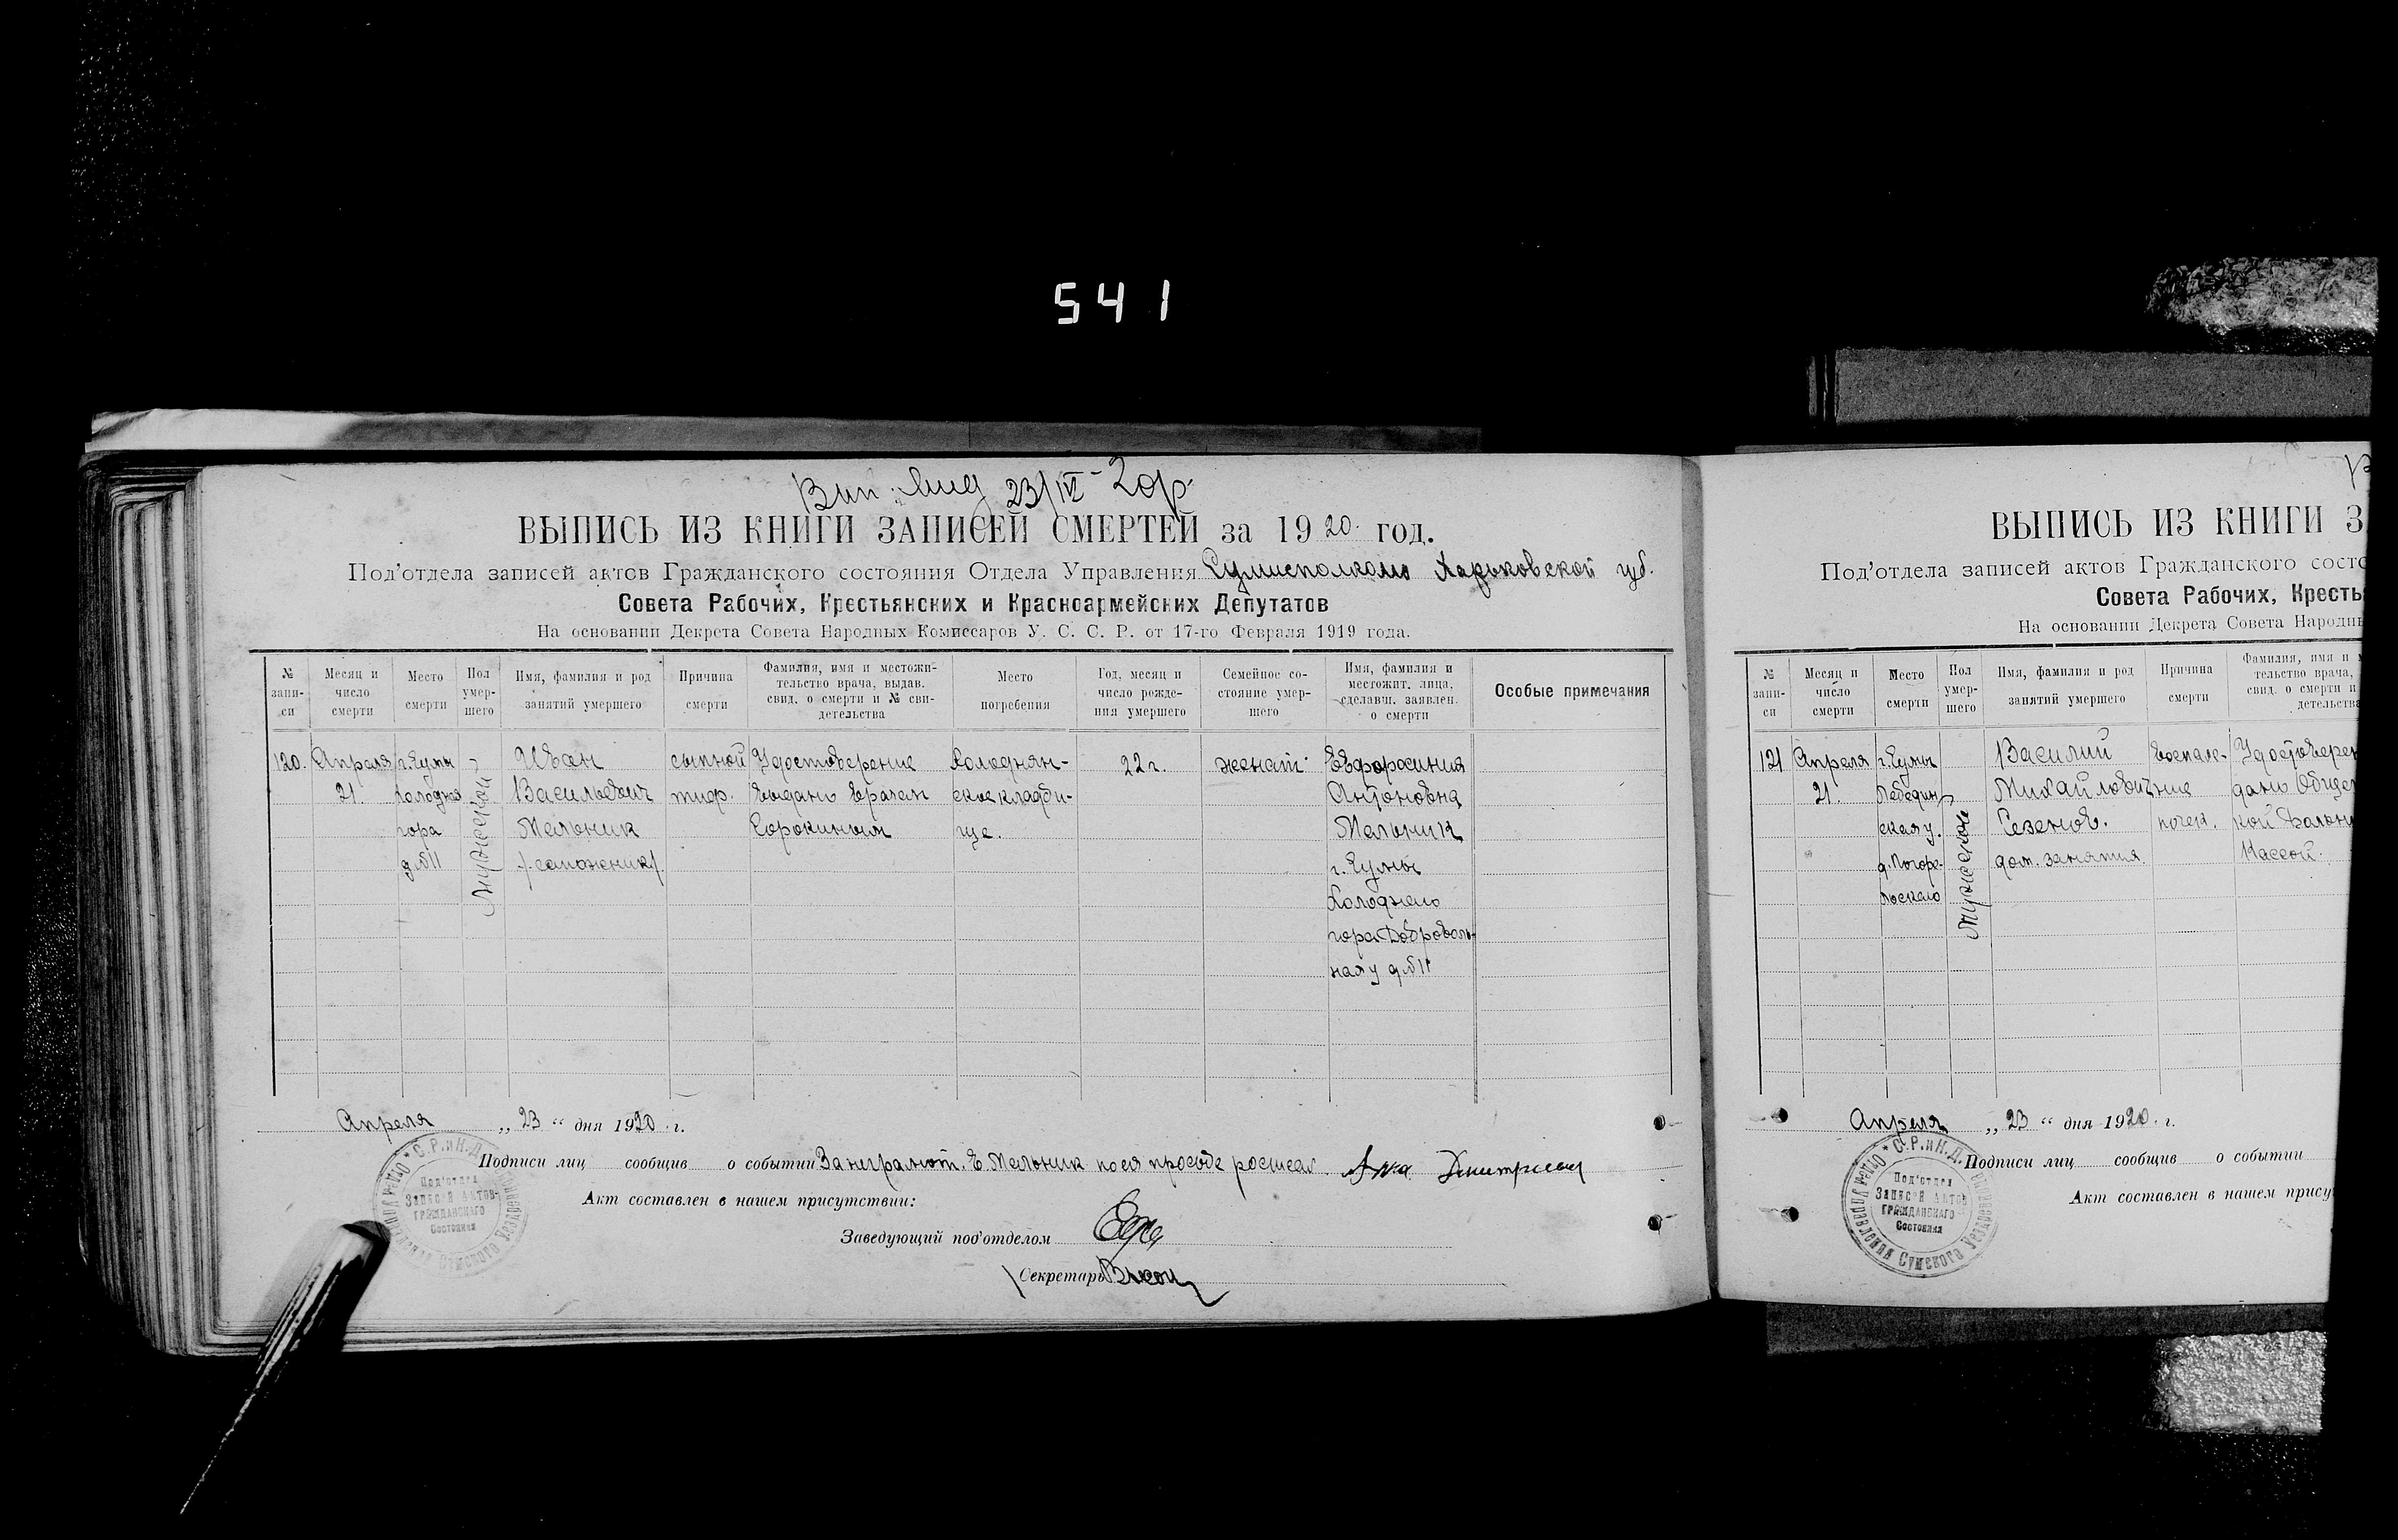 541
23/IV-20г.
ВЫПИСЬ ИЗ КНИГИ ЗАПИСЕЙ СМЕРТЕЙ за 1920 год.
Под'отдела записей актов Гражданского состояния Отдела Управления Сумисполкома Харьковской губ.
Совета Рабочих, Крестьянских и Красноармейских Депутатов
На основании Декрета Совета Народных Комиссаров У. С. С. Р. от 17-го Февраля 1919 года.
№ запи-си
Месяц и число смерти
Место смерти
Пол умер-шего
Имя, фамилия и род занятий умершего
Причина смерти
Фамилия, имя и местожи-тельство врача, выдав. свид. о смерти и № сви-детельства
Место погребения
Год, месяц и число рожде-ния умершего
Семейное со-стояние умер-шего
Имя, фамилия и местожит. лица, сделавш. заявлен. о смерти
Особые примечания
120.
Апреля
21.
г. Сумы
Холодная
гора
д №11
Мужской
Иван
Васильевич
Мельник
/сапожник/.
сыпной
тиф.
Удостоверение
выдано врачем
Сорокиным
Холоднян-
ское кладби-
ще.
22 г.
женат.
Евфросиния
Антоновна
Мельник
г. Сумы
Холодная
гора Доброволь-
ная у д №11
Апреля „ 23 “ дня 1920 г.
Подписи лиц сообщив о событии За неграмот. Е. Мельник по ея просьбе росписал
Акт составлен в нашем присутствии:
Заведующий под'отделом
Секретарь
* С.Р.иН.Д.
Под'отдел
Записей Актов
ГРАЖДАНСКАГО
Состояния
ВЫПИСЬ ИЗ КНИГИ З
Под'отдела записей актов Гражданского состо
Совета Рабочих, Кресть
На основании Декрета Совета Народн
№ запи-си
Месяц и число смерти
Место смерти
Пол умер-шего
Имя, фамилия и род занятий умершего
Причина смерти
Фамилия, имя и м
тельство врача,
свид. о смерти и
детельства
121
Апреля
21.
г. Сумы
Лебедин
ская у.
д. Погоре-
льскаго
Мужской
Василий
Михайлович
Сезенов.
дом. занятия.
воспале-
ние
почек.
Удостоверен
дано Общес
кой Больни
Кассой.
Апреля „ 23 “ дня 1920 г.
Подписи лиц сообщив о событии
Акт составлен в нашем прису
* С.Р.иН.Д. Отдел Управления Сумского Уездного
Под'отдел
Записей Актов
ГРАЖДАНСКАГО
Состояния